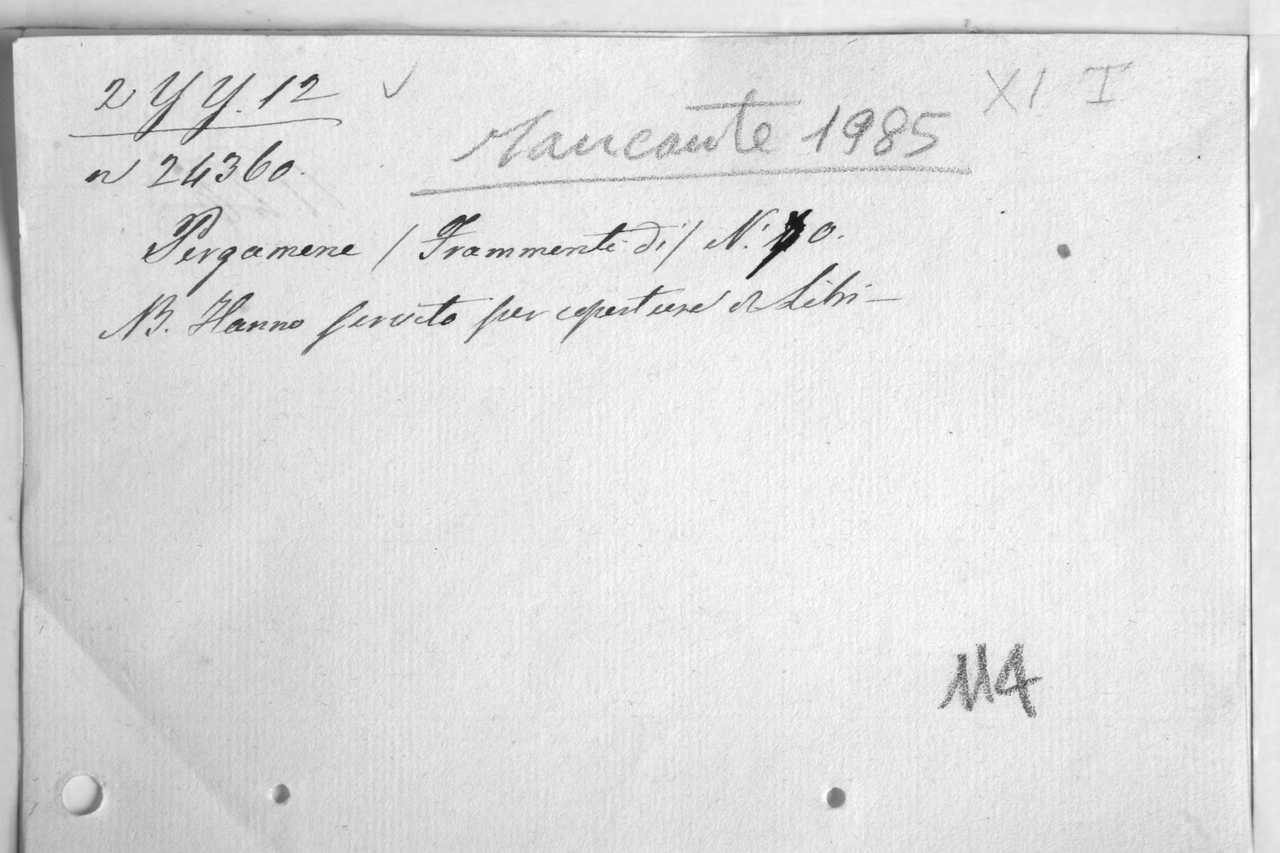 2 YY. 12
XI I
Mancante 1985
n 24360.
Pergamene / Frammenti di / N.º 0.
NB. Hanno servito per coperture di Libri —
114